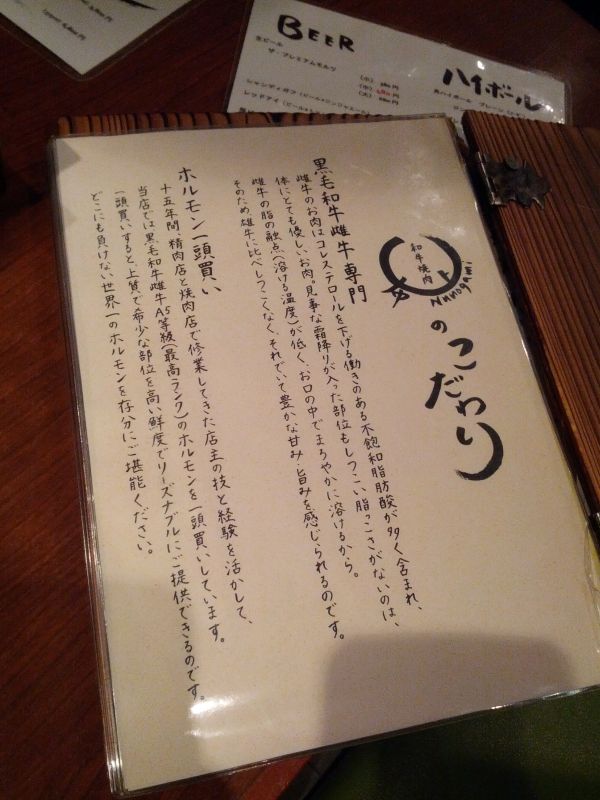 BEER
生ビール
ザ・プレミアムモルツ
(小)
(中)
(大)
ハイボール
角ハイボール プレーン
シャンディガフ(ビール+ジンジャエール
レッドアイ(ビール+
和牛焼肉
Nunogami
のこだわり
黒毛和牛雌牛専門
雌牛のお肉はコレステロールを下げる働きのある不飽和脂肪酸が多く含まれ、
体にとても優しいお肉。見事な霜降りが入った部位もしつこい脂っこさがないのは、
雌牛の脂の融点(溶ける温度)が低く、お口の中でまろやかに溶けるから。
そのため雄牛に比べしつこくなく、それでいて豊かな甘み・旨みを感じられるのです。
ホルモン一頭買い
十五年間、精肉店と焼肉店で修業してきた店主の技と経験を活かして、
当店では黒毛和牛雌牛A5等級(最高ランク)のホルモンを一頭買いしています。
一頭買いすると、上質で希少な部位を高い鮮度でリーズナブルにご提供できるのです。
どこにも負けない世界一のホルモンを存分にご堪能ください。